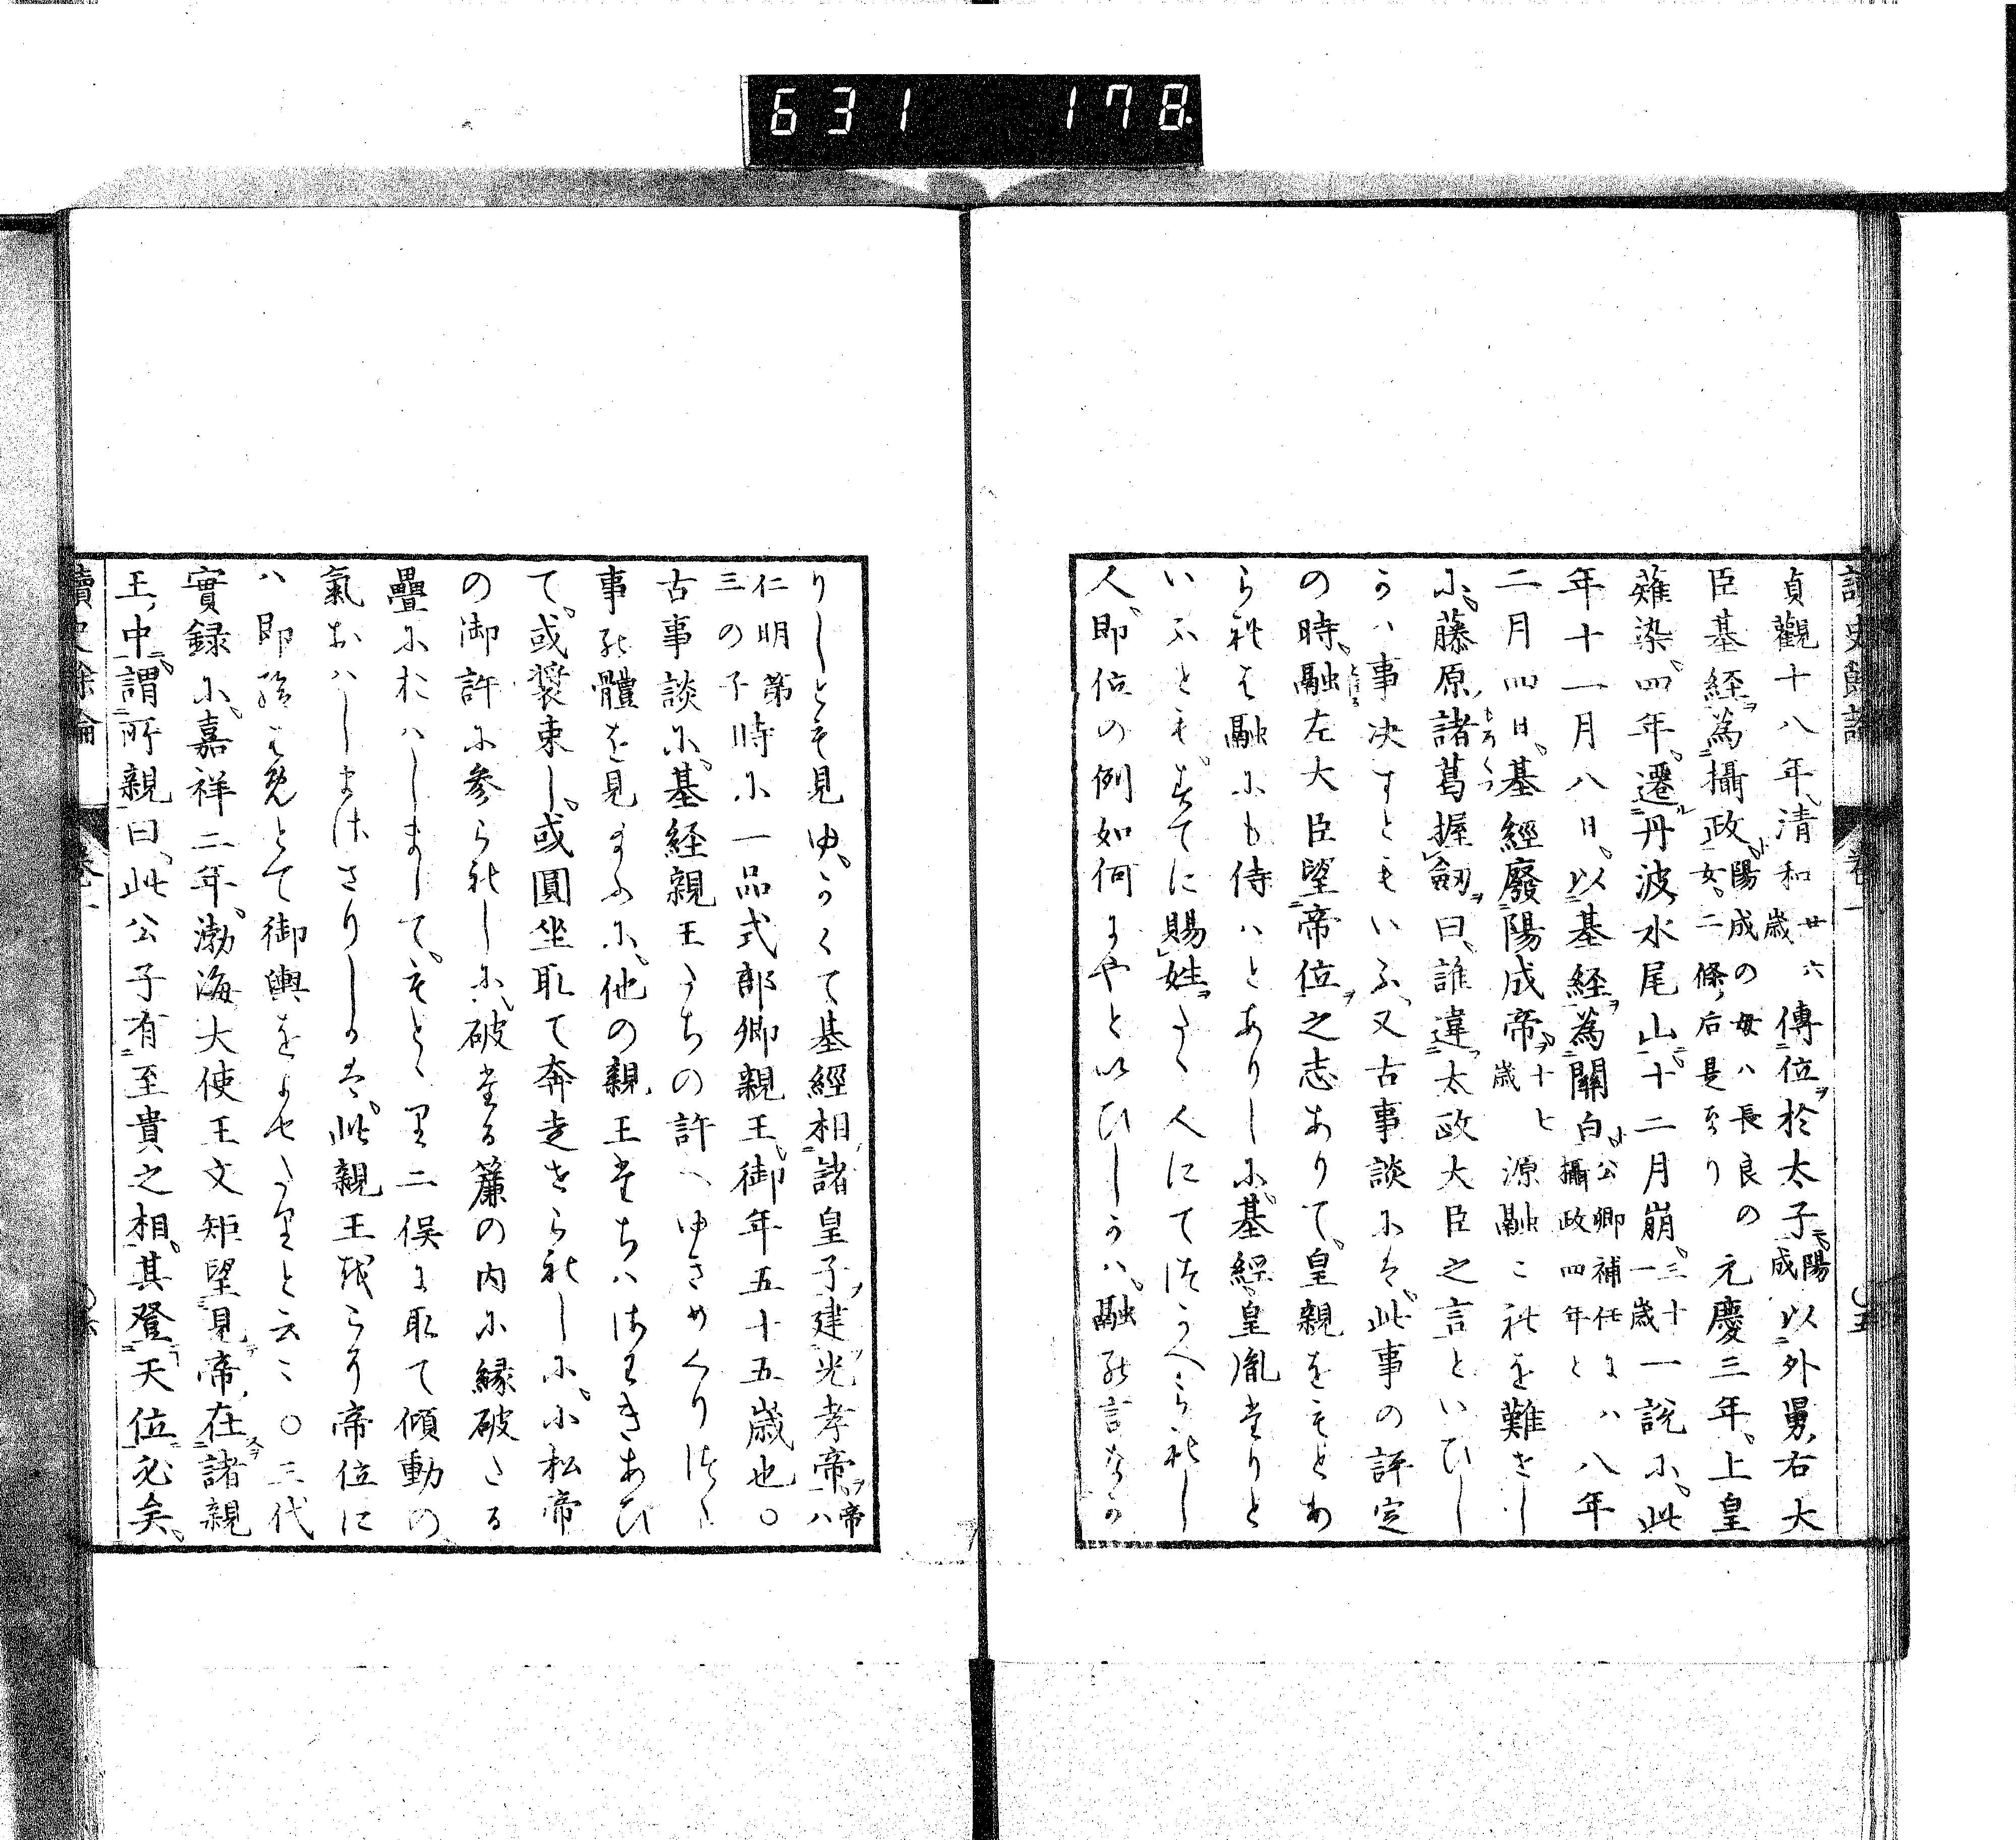 631 178
讀史餘論 卷一 〇五
貞觀十八年、清和廿六歳傳位於太子陽成以外舅、右大
臣基経為攝政、陽成の母ハ長良の女。二條后是なり元慶三年。上皇
薙染。四年。遷丹波水尾山。十二月崩。三十一歳一説に。此
年十一月八日。以基経為關白、公卿補任にハ攝政四年と八年
二月四日。基經廢陽成帝十七歳源融これを難きし
に。藤原諸葛もろくつ握劔曰、誰違太政大臣之言といひし
かハ事决すともいふ、又古事談にハ。此事の評定
の時。融とほる左大臣望帝位之志ありて。皇親をもとめ
られは融にも侍ハとありしに。基經。皇胤なりと
いふとも。すてに賜姓たゝ人にてつかへられし
人即位の例如何にやといひしかハ。融の言なか
りしとそ見ゆ。かくて基經相諸皇子、建光孝帝帝ハ
仁明第三の子時に一品式部卿親王、御年五十五歳也。〇
古事談に。基経親王たちの許へゆきめくりつゝ
事の體を見まふに。他の親王たちハさわきあひ
て。或裝束し。或圓坐取て奔走せられしに。小松帝
の御許に参られしに、破たる簾の内に縁破たる
疊におハしまして。もとゝり二俣に取て傾動の
氣おハしまさゝりしかは。此親王我らか帝位に
ハ即給はめとて御輿をよせたりと云々 〇三代
實録に。嘉祥二年。渤海大使王文矩望見帝、在諸親
王中、謂所親曰、此公子有至貴之相。其登天位必矣。
讀史餘論 卷一 〇六